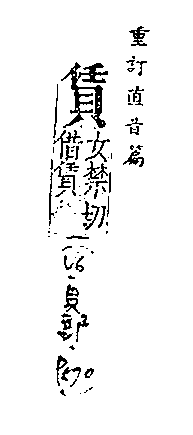 重訂直音篇
賃
女禁切
借賃
貝部